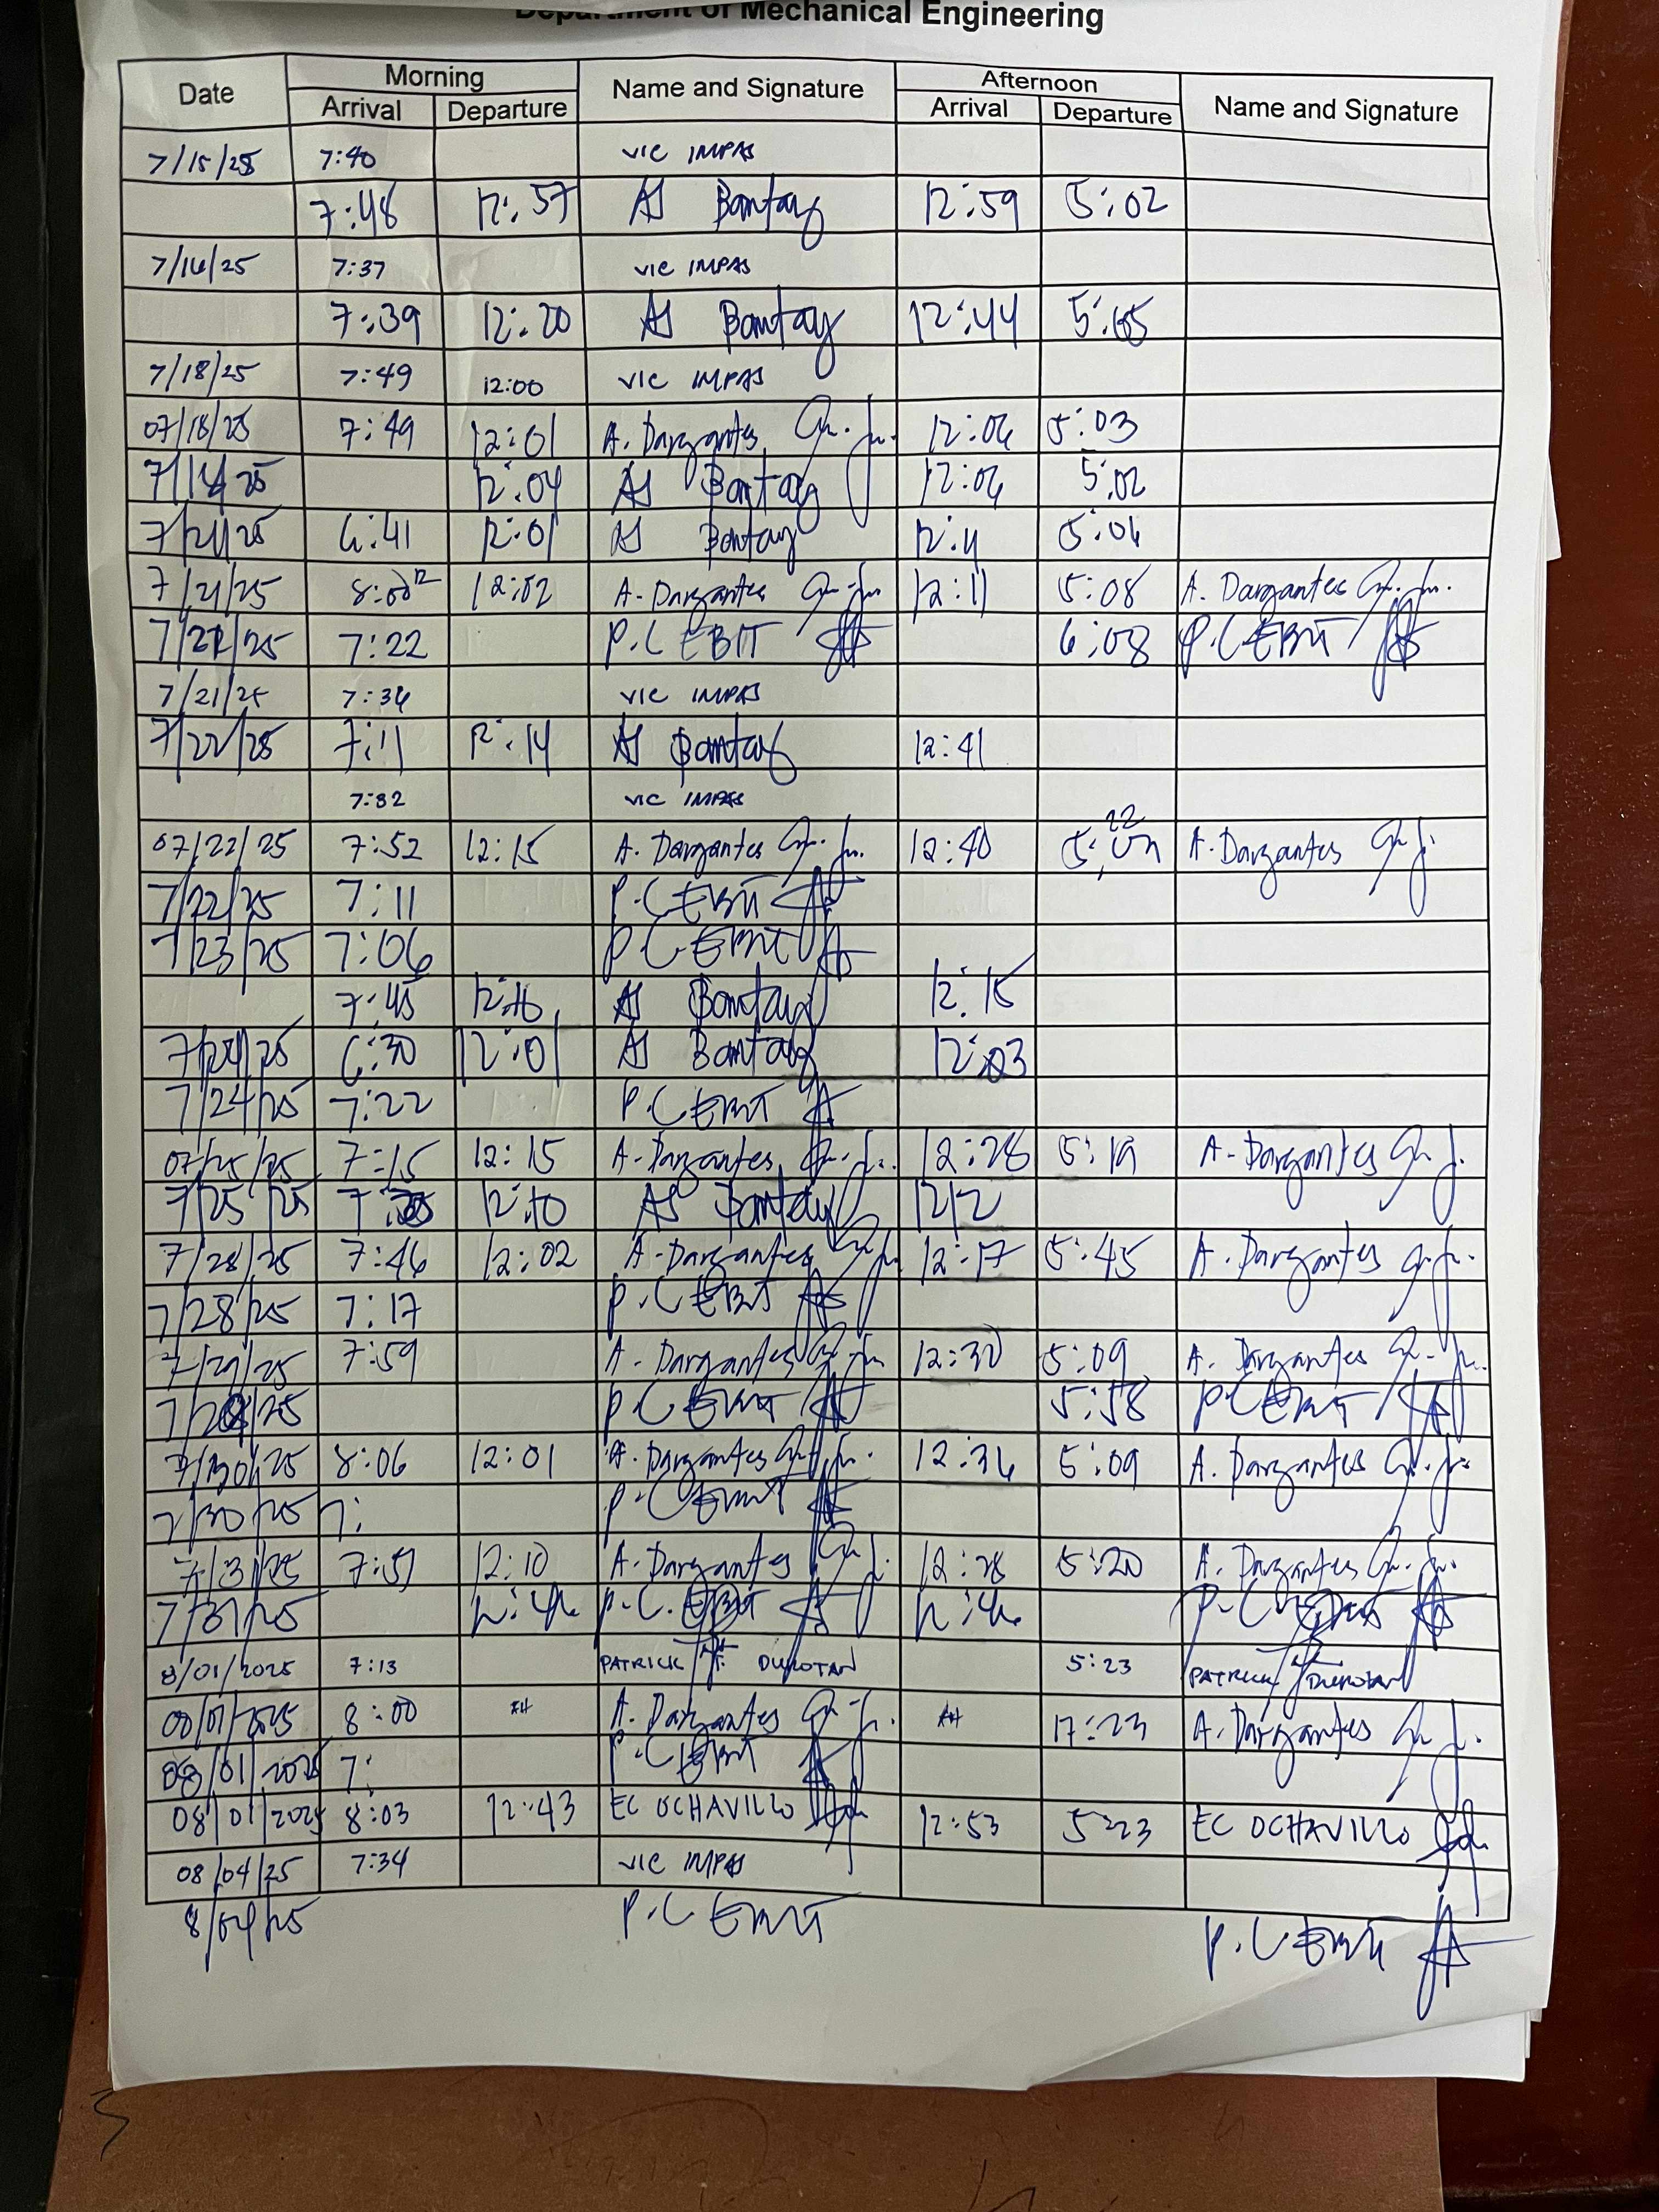 Department of Mechanical Engineering
Date Morning Name and Signature Afternoon Name and Signature
Arrival Departure Arrival Departure
7/15/25 7:40 VIC IMPAS
7:48 12:57 AJ Bantay 12:59 5:02
7/16/25 7:37 VIC IMPAS
7:39 12:20 AJ Bantay 12:44 5:05
7/18/25 7:49 12:00 VIC IMPAS
07/18/25 7:49 12:01 A. Dargantes Jr. 12:06 5:03
12:04 AJ Bantay 12:06 5:02
7/21/25 6:41 12:01 AJ Bantay 12:11 5:06
7/21/25 8:00 12:02 A. Dargantes 12:11 5:08 A. Dargantes
7/21/25 7:22 P.C EBIT 6:08 P.C EBIT
7/21/25 7:36 VIC IMPAS
7/22/25 7:11 12:14 AJ Bantay 12:41
7:32 VIC IMPAS
07/22/25 7:52 12:15 A. Dargantes 12:40 5:22 A. Dargantes
7/22/25 7:11 P.C EBIT
7/23/25 7:06 P.C EBIT
7:45 AJ Bantay 12:15
7/24/25 6:30 12:01 AJ Bantay 12:03
7/24/25 7:22 P.C EBIT
07/25/25 7:15 12:15 A. Dargantes 12:28 5:19 A. Dargantes
7/25/25 12:10 AJ Bantay 12:12
7/28/25 7:46 12:02 A. Dargantes 12:17 5:45 A. Dargantes
7/28/25 7:17 P.C EBIT
7/29/25 7:59 A. Dargantes 12:30 5:09 A. Dargantes
P.C EBIT 5:58 P.C EBIT
7/30/25 8:06 12:01 A. Dargantes 12:36 5:09 A. Dargantes
7/30/25 7: P.C EBIT
7/31/25 7:51 12:10 A. Dargantes 12:28 5:20 A. Dargantes
7/31/25 P.C. EBIT P.C EBIT
8/01/2025 7:13 PATRICK DUROTAN 5:23 PATRICK DUROTAN
08/01/2025 8:00 A. Dargantes 17:23 A. Dargantes
08/01/2025 7: P.C EBIT
08/01/2025 8:03 12:43 EC OCHAVILLO 12:53 5:23 EC OCHAVILLO
08/04/25 7:34 VIC IMPAS
8/04/25 P.C EBIT P.C EBIT